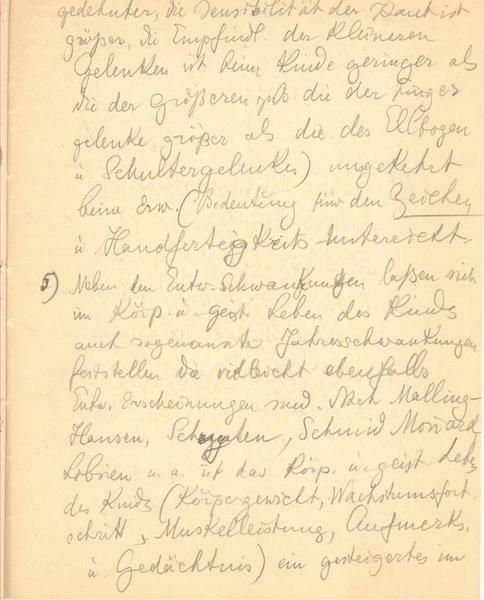 gedehnter, die Sensibilität der Haut ist
größer, die Empfindl. der kleineren
Gelenken ist beim Kinde geringer als
die der größeren als die der Finger
gelenke größer als die des Ellbogen
u Schultergelenkes) umgekehrt
beim Erw. (Bedeutung für den Zeichen
u Handfertigkeits-Unterricht.
5) Neben den Entw. Schwankungen laßen sich
im Körp. u. geist. Leben des Kinds
auch sogenannte Jahresschwankungen
feststellen die vielleicht ebenfalls
Entw. Erscheinungen sind. Nach Malling-
Hansen, Schuyten, Schmid Monard
Lobsien u. a. ist das Körp. u. geist. Leben
des Kinds (Körpergewicht, Wachstumsfort-
schritt, Muskelleistung, Aufmerks.
u Gedächtnis) ein gesteigertes im